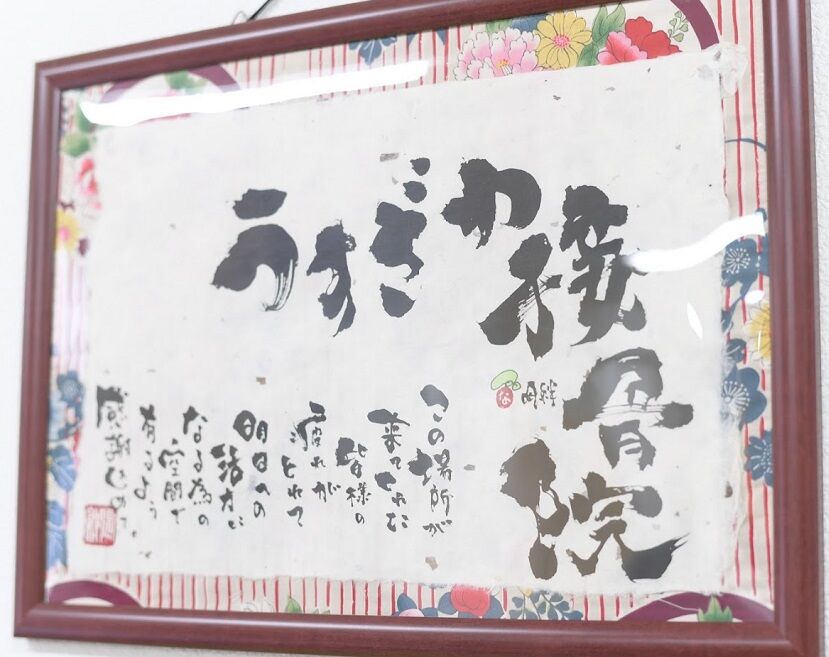 うすざわ
接骨院
この場所が
来てくれた
皆様の
疲れが
とれて
明日への
活力に
なる為の
空間で
有るよう
感謝込めて
な